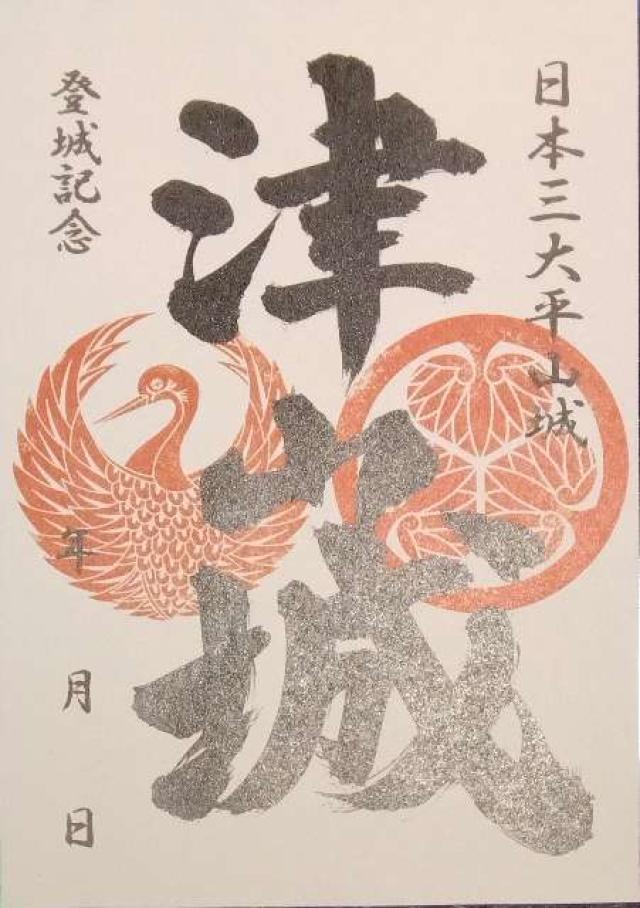 日本三大平山城
津山城
登城記念
年
月
日